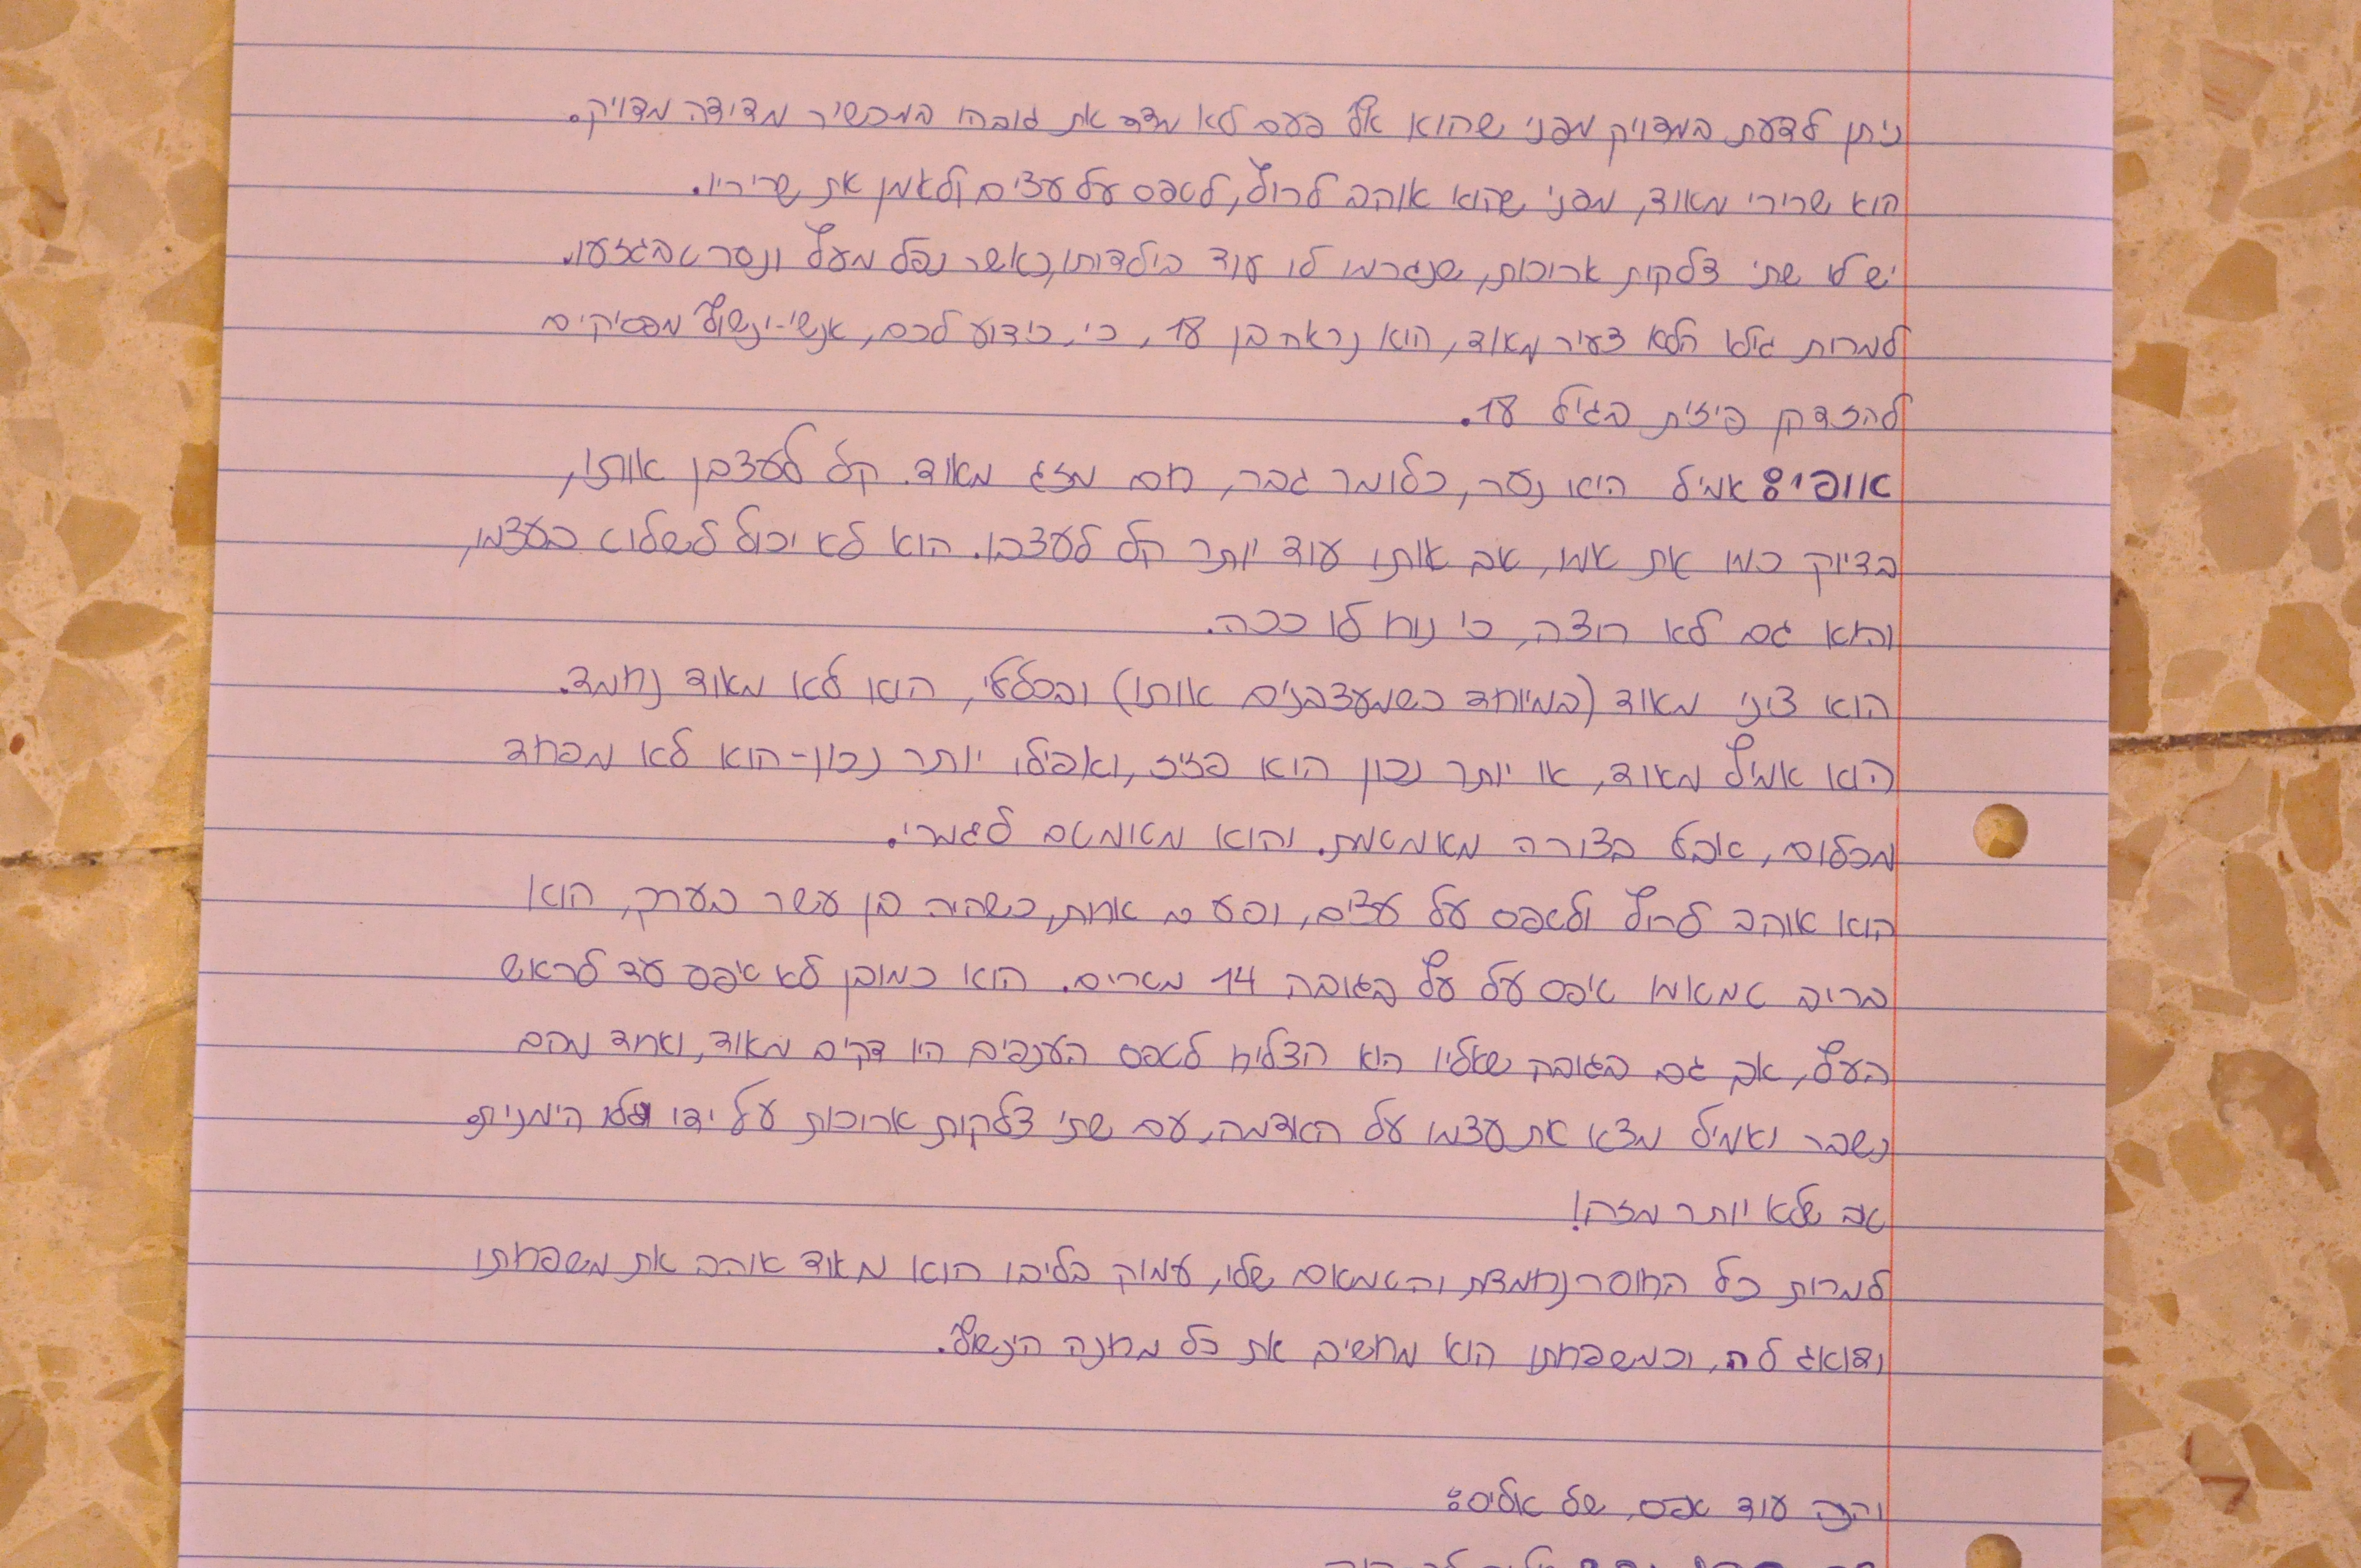 ניתן לדעת במדויק מפני שהוא אף פעם לא מדד את גובהו במכשיר מדידה מדויק.
הוא שרירי מאוד, מפני שהוא אוהב לרוץ, לטפס על עצים ולאמן את שריריו.
יש לו שתי צלקות ארוכות, שנגרמו לו עוד בילדותו, כאשר נפל מעץ ונסרט בגזעו.
למרות גילו הלא צעיר מאוד, הוא נראה בן 18, כי, כידוע לכם, אנשי-ינשוף מפסיקים
להזדקן פיזית בגיל 18.
אופי: אמיל הוא נער, כלומר גבר, חם מזג מאוד. קל לעצבן אותו,
בדיוק כמו את אמו, אך אותו עוד יותר קל לעצבן. הוא לא יכול לשלוט בעצמו,
והוא גם לא רוצה, כי נוח לו ככה.
הוא ציני מאוד (במיוחד כשמעצבנים אותו) ובכללי, הוא לא מאוד נחמד.
הוא אמיץ מאוד, או יותר נכון הוא פזיז, ואפילו יותר נכון- הוא לא מפחד
מכלום, אבל בצורה מאמטמת. והוא מטומטם לגמרי.
הוא אוהב לרוץ ולטפס על עצים, ופעם אחת, כשהיה בן עשר בערך, הוא
בריב טמאמו טיפס על עץ בגובה 14 מטרים. הוא כמובן לא טיפס עד לראש
העץ, אך גם בגובה שאליו הוא הצליח לטפס הענפים היו דקים מאוד, ואחד מהם
נשבר ואמיל מצא את עצמו על האדמה, עם שתי צלקות ארוכות על ידו הימנית.
טוב שלא יותר מזה!
למרות כל החוסר נחמדות והטמטום שלו, עמוק בליבו הוא מאוד אוהב את משפחתו
ודואג לה, וכמשפחתו הוא מחשיב את כל מחנה הינשוף.
והנה עוד אפס, של אליס: